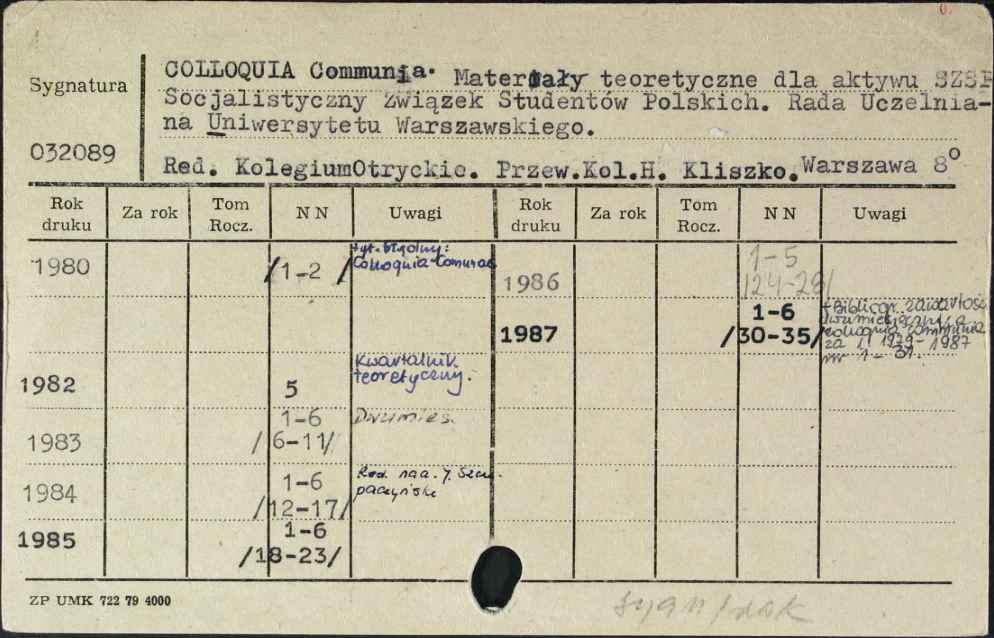 0.
COLLOQUIA Communia. Materiały teoretyczne dla aktywu SZSP
Sygnatura
Socjalistyczny Związek Studentów Polskich. Rada Uczelnia-
na Uniwersytetu Warszawskiego.
032089
Red. KolegiumOtryckie. Przew.Kol.H. Kliszko.Warszawa 8°
Rok druku Za rok Tom Rocz. NN Uwagi Rok druku Za rok Tom Rocz. NN Uwagi
1980 /1-2 / tyt. 
Colloquia
1986 1-5
124-28/
1987 1-6
/30-35/ + Bibliogr. zawartości
dwumiesięcznika
Colloquia Communia
za l. 1979-1987
nr 1-31.
1982 5 Kwartalnik
teoretyczny.
1983 1-6
/6-11/ Dwumies.
1984 1-6
/12-17/ Red. nacz. J.
1985 1-6
/18-23/
ZP UMK 722 79 4000
sygn.